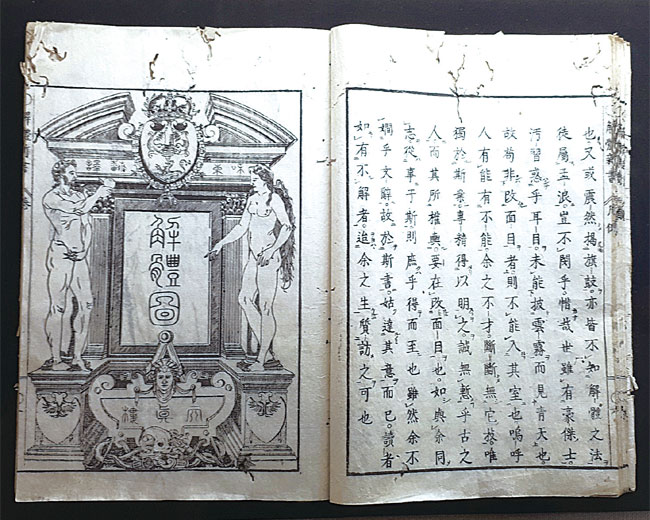 也又或震然揭旗鼓。亦皆不知解體之法
徒屬孟浪。豈不閔乎。惜哉世雖有豪傑士。
汚習惑乎耳目。未能披雲霧而見青天也。
故苟非改面目者。則不能入其室也。嗚呼
人有能有不能。余之不才。斷斷無它技。唯
獨於斯業專精。得以明之。誠無慙乎古之
人。而其所權輿。要在改面目也。如與余同
志。從事于斯。則庶乎得而至也。雖然余不
嫺乎文辭。故於斯書。姑達其意而已。讀者
如有不解者。迨余之生。質訪之可也
解體圖
天真樓